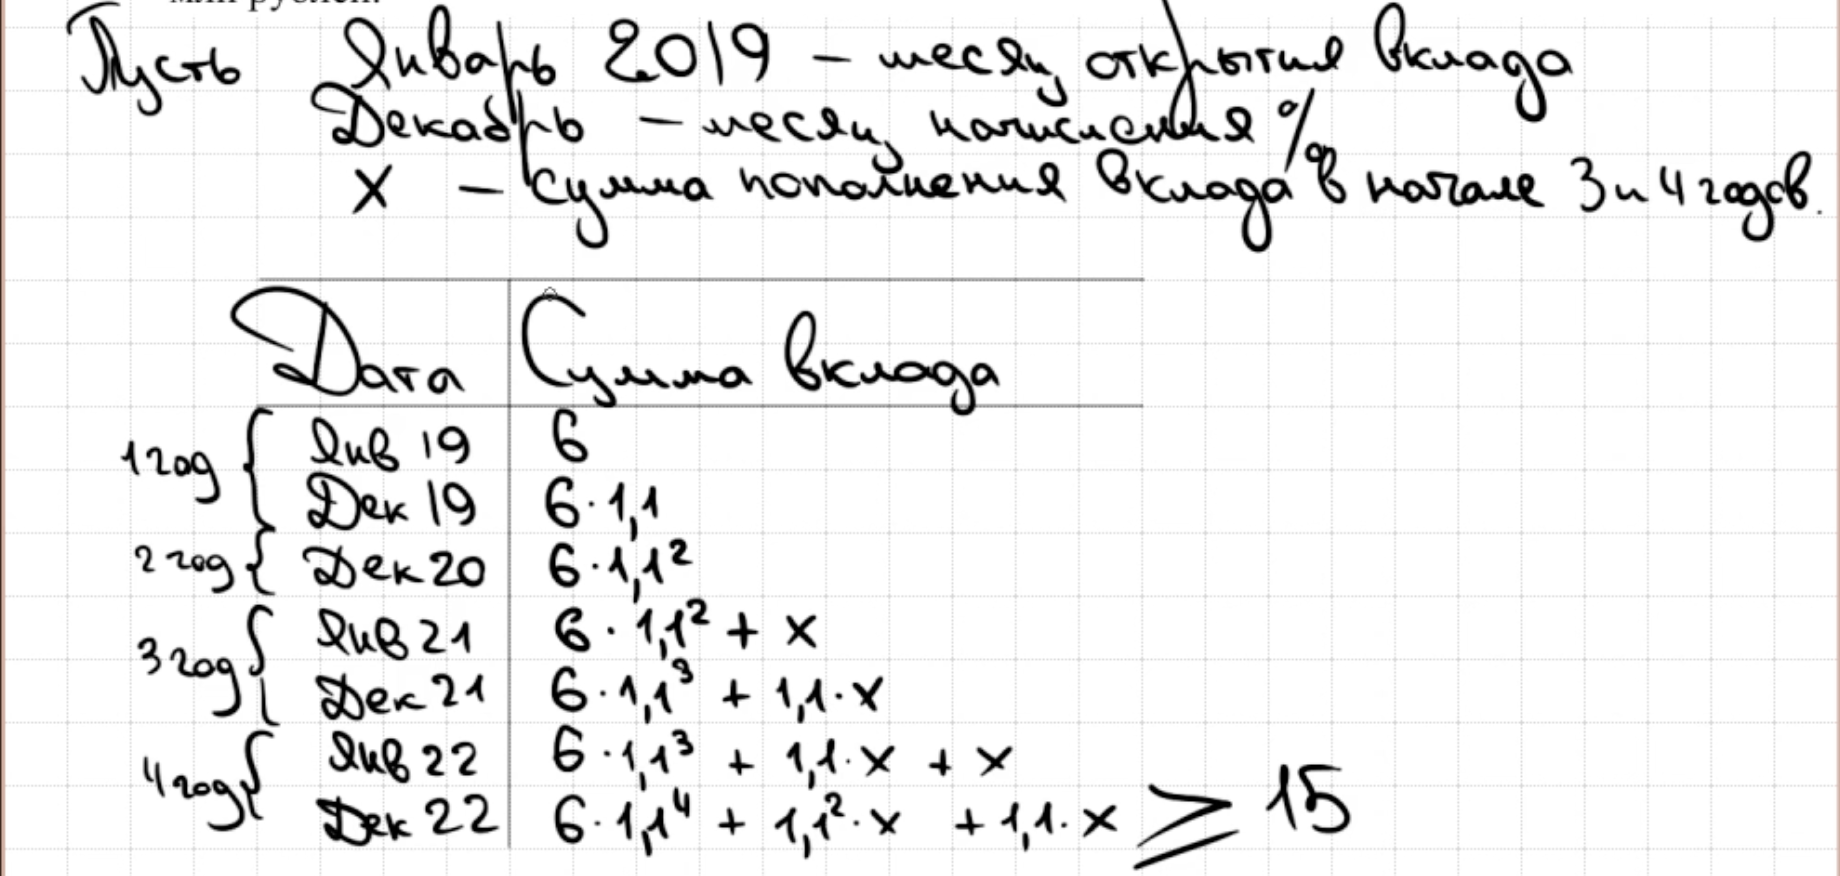 млн рублей.
Пусть Январь 2019 – месяц открытия вклада
Декабрь – месяц начисления %
x – сумма пополнения вклада в начале 3 и 4 годов.
Дата Сумма вклада
1 год { Янв 19 6
Дек 19 6·1,1
2 год { Дек 20 6·1,1²
3 год { Янв 21 6·1,1² + x
Дек 21 6·1,1³ + 1,1·x
4 год { Янв 22 6·1,1³ + 1,1·x + x
Дек 22 6·1,1⁴ + 1,1²·x + 1,1·x ⩾ 15